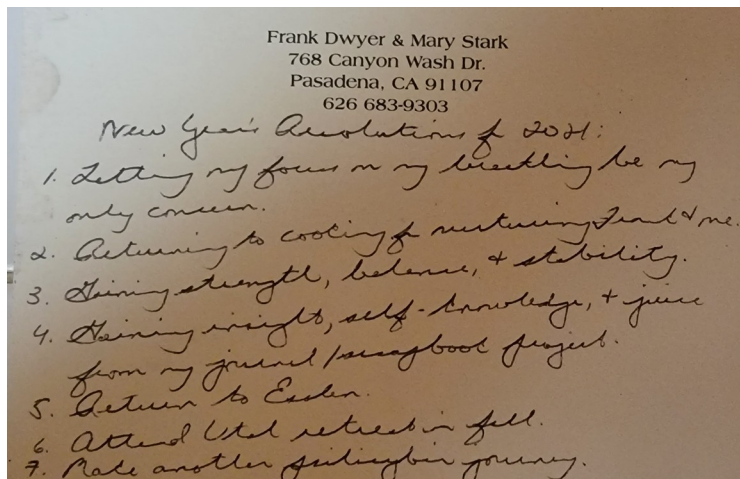 Frank Dwyer & Mary Stark
768 Canyon Wash Dr.
Pasadena, CA 91107
626 683-9303
New Year's Resolutions for 2021:
1. Letting my focus on my breathing be my
only concern.
2. Returning to cooking for nurturing Frank & me.
3. Gaining strength, balance, & stability.
4. Gaining insight, self-knowledge, & juice
from my journal/scrapbook project.
5. Return to Esalen.
6. Attend Utah retreat in fall.
7. Make another psilocybin journey.